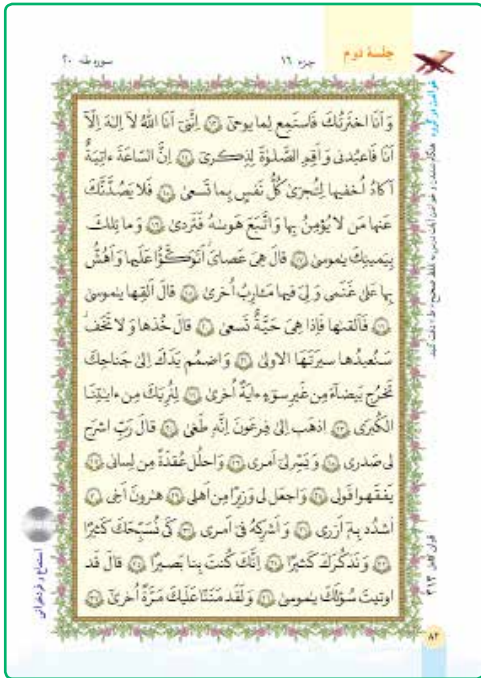 جلسهٔ دوم
جزء ۱۶
سوره طه ۲۰
وَ اَنَا اختَرتُكَ فَاستَمِع لِما يوحىٰ ﴿١٣﴾ اِنَّنى اَنَا اللّٰهُ لا اِلٰهَ اِلّا
اَنَا فَاعبُدنى وَ اَقِمِ الصَّلوٰةَ لِذِكرى ﴿١٤﴾ اِنَّ السّاعَةَ ءاتِيَةٌ
اَكادُ اُخفيها لِتُجزىٰ كُلُّ نَفسٍ بِما تَسعىٰ ﴿١٥﴾ فَلا يَصُدَّنَّكَ
عَنها مَن لا يُؤمِنُ بِها وَ اتَّبَعَ هَوىٰهُ فَتَردىٰ ﴿١٦﴾ وَ ما تِلكَ
بِيَمينِكَ يٰموسىٰ ﴿١٧﴾ قالَ هِىَ عَصاىَ اَتَوَكَّؤُا عَلَيها وَ اَهُشُّ
بِها عَلىٰ غَنَمى وَ لِىَ فيها مَـٔارِبُ اُخرىٰ ﴿١٨﴾ قالَ اَلقِها يٰموسىٰ
﴿١٩﴾ فَاَلقىٰها فَاِذا هِىَ حَيَّةٌ تَسعىٰ ﴿٢٠﴾ قالَ خُذها وَ لا تَخَف
سَنُعيدُها سيرَتَهَا الاولىٰ ﴿٢١﴾ وَ اضمُم يَدَكَ اِلىٰ جَناحِكَ
تَخرُج بَيضاءَ مِن غَيرِ سوءٍ ءايَةً اُخرىٰ ﴿٢٢﴾ لِنُرِيَكَ مِن ءايٰتِنَا
الكُبرَى ﴿٢٣﴾ اذهَب اِلىٰ فِرعَونَ اِنَّهو طَغىٰ ﴿٢٤﴾ قالَ رَبِّ اشرَح
لى صَدرى ﴿٢٥﴾ وَ يَسِّر لى اَمرى ﴿٢٦﴾ وَ احلُل عُقدَةً مِن لِسانى ﴿٢٧﴾
يَفقَهوا قَولى ﴿٢٨﴾ وَ اجعَل لى وَزيرًا مِن اَهلى ﴿٢٩﴾ هٰرونَ اَخِى ﴿٣٠﴾
اشدُد بِهى اَزرى ﴿٣١﴾ وَ اَشرِكهُ فى اَمرى ﴿٣٢﴾ كَى نُسَبِّحَكَ كَثيرًا
﴿٣٣﴾ وَ نَذكُرَكَ كَثيرًا ﴿٣٤﴾ اِنَّكَ كُنتَ بِنا بَصيرًا ﴿٣٥﴾ قالَ قَد
اوتيتَ سُؤلَكَ يٰموسىٰ ﴿٣٦﴾ وَ لَقَد مَنَنّا عَلَيكَ مَرَّةً اُخرىٰ ﴿٣٧﴾
استماع و فردخوانی
قرآن کامل ۳۱۳
۸۲